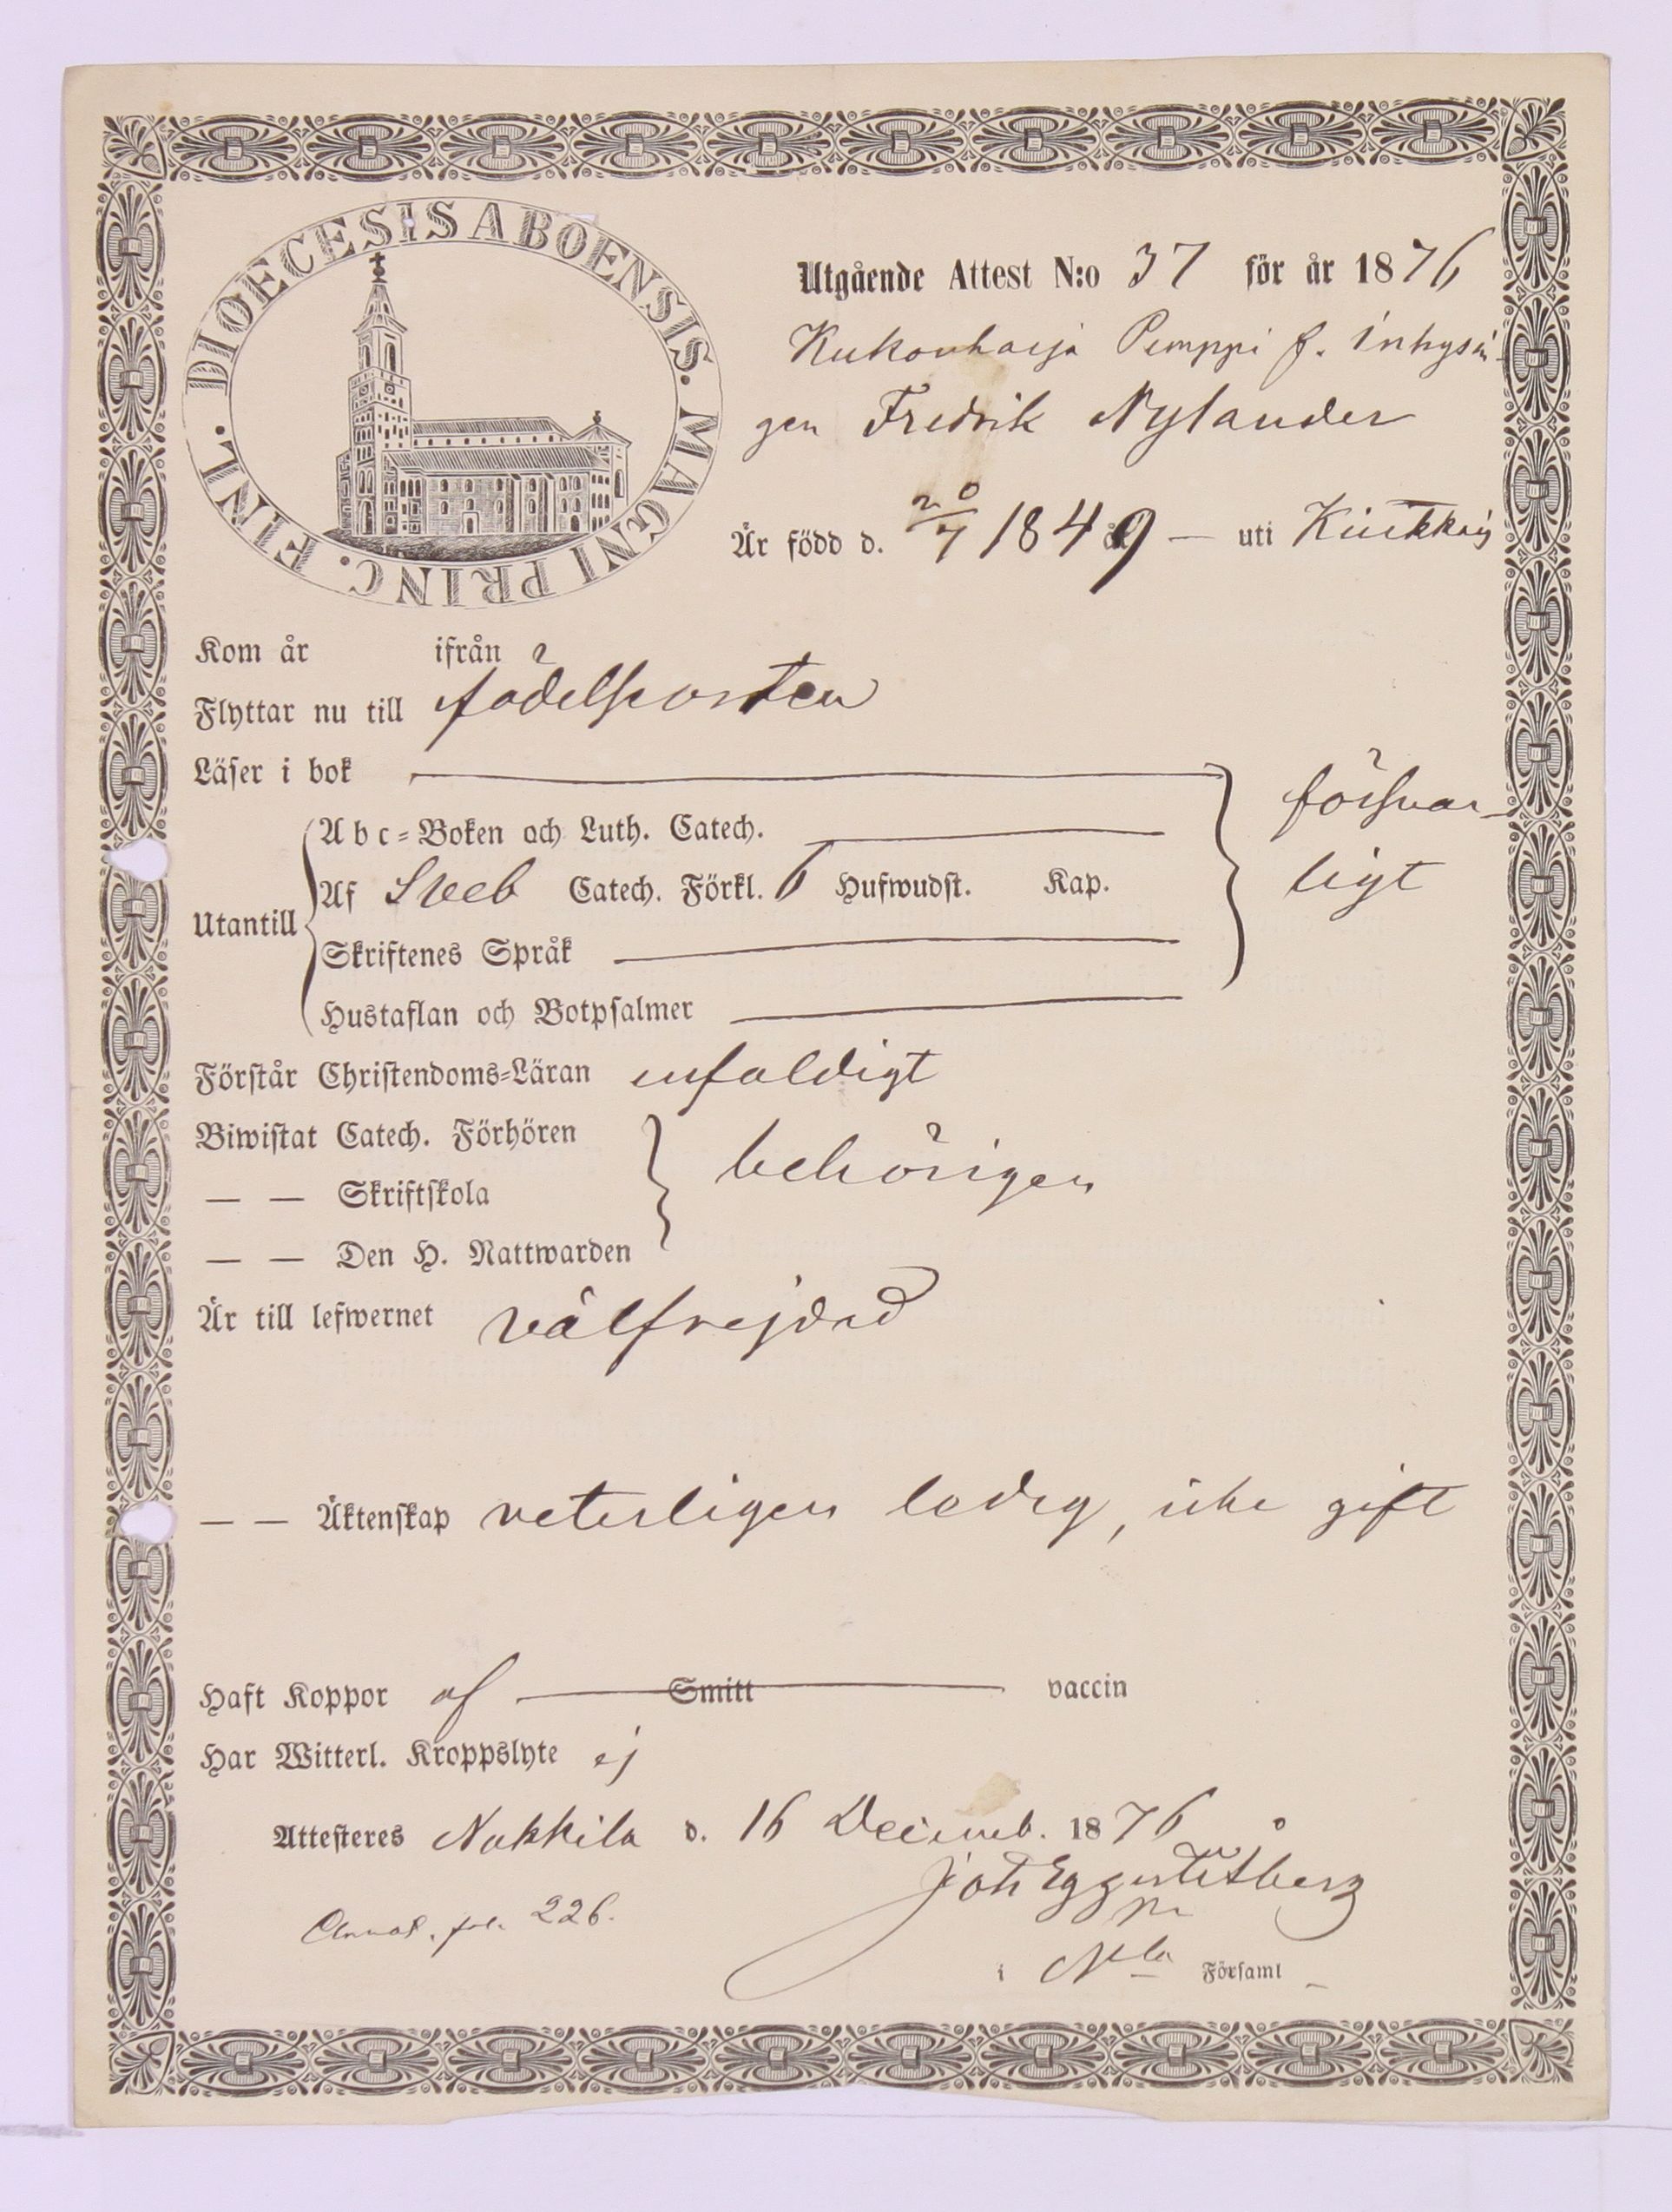 DIOECESIS ABOENSIS. MAGNI PRINC. FINL.
Utgående Attest N:o 37 för år 1876
Kukonharja Pumppi f. inhysin-
gen Fredrik Nylander
Är född d. 20/7 1849 — uti
Kom år ifrån
Flyttar nu till födelseorten
Läser i bok
försvar-
ligt
Abc-Boken och Luth. Catech.
Utantill
Af Sveb Catech. Förkl. 6 Hufwudst. Kap.
Skriftenes Språk
Hustaflan och Botpsalmer
Förstår Christendoms-Läran enfaldigt
Biwistat Catech. Förhören
— — Skriftskola
behörigen
— — Den H. Nattwarden
Är till lefwernet välfrejdad
— — Äktenskap veterligen ledig, icke gift
Haft Koppor af Smitt vaccin
Har Witterl. Kroppslyte ej
Attesteres Nakkila d. 16 Decemb. 1876
Joh Eggert
Annot. fol. 226.
i Nla Församl